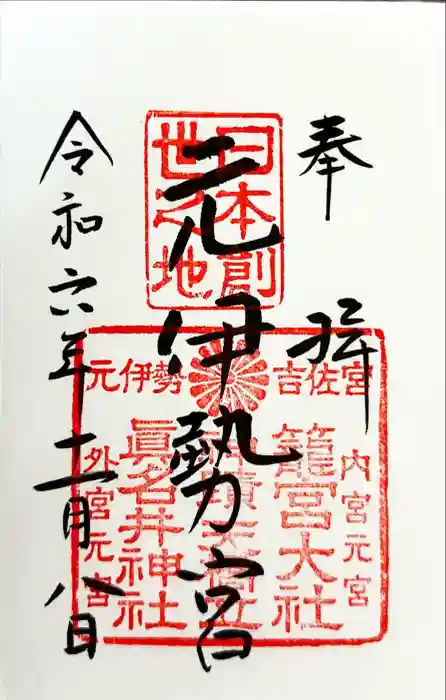 奉拝
日本創
世之地
元伊勢宮
吉佐宮
元伊勢
内宮元宮
籠宮大社
眞名井神社
外宮元宮
令和六年二月八日